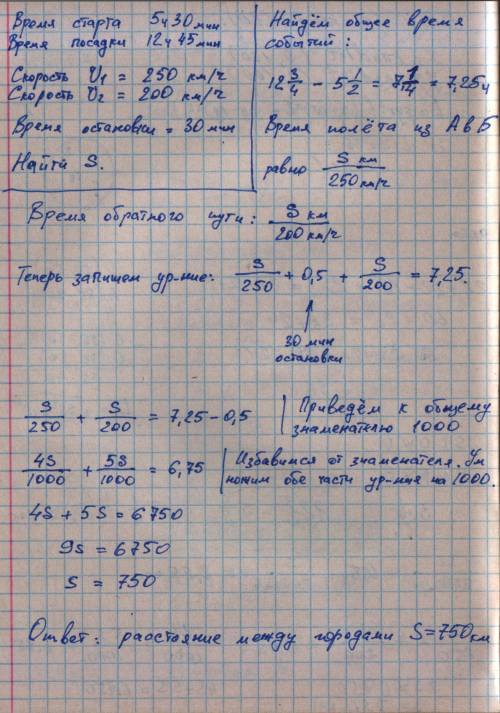 Время старта 5ч 30мин
Время посадки 12ч 45мин
Скорость V1 = 250 км/ч
Скорость V2 = 200 км/ч
Время остановки = 30 мин
Найти S.
Найдём общее время
событий:
12 3/4 - 5 1/2 = 7 1/4 = 7,25ч
Время полёта из А в Б
равно S км / 250 км/ч
Время обратного пути: S км / 200 км/ч
Теперь запишем ур-ние: S/250 + 0,5 + S/200 = 7,25.
30 мин
остановки
S/250 + S/200 = 7,25 - 0,5 | Приведём к общему
знаменателю 1000
4S/1000 + 5S/1000 = 6,75 | Избавимся от знаменателя. Ум
ножим обе части ур-ния на 1000.
4S + 5S = 6750
9S = 6750
S = 750
Ответ: расстояние между городами S=750км